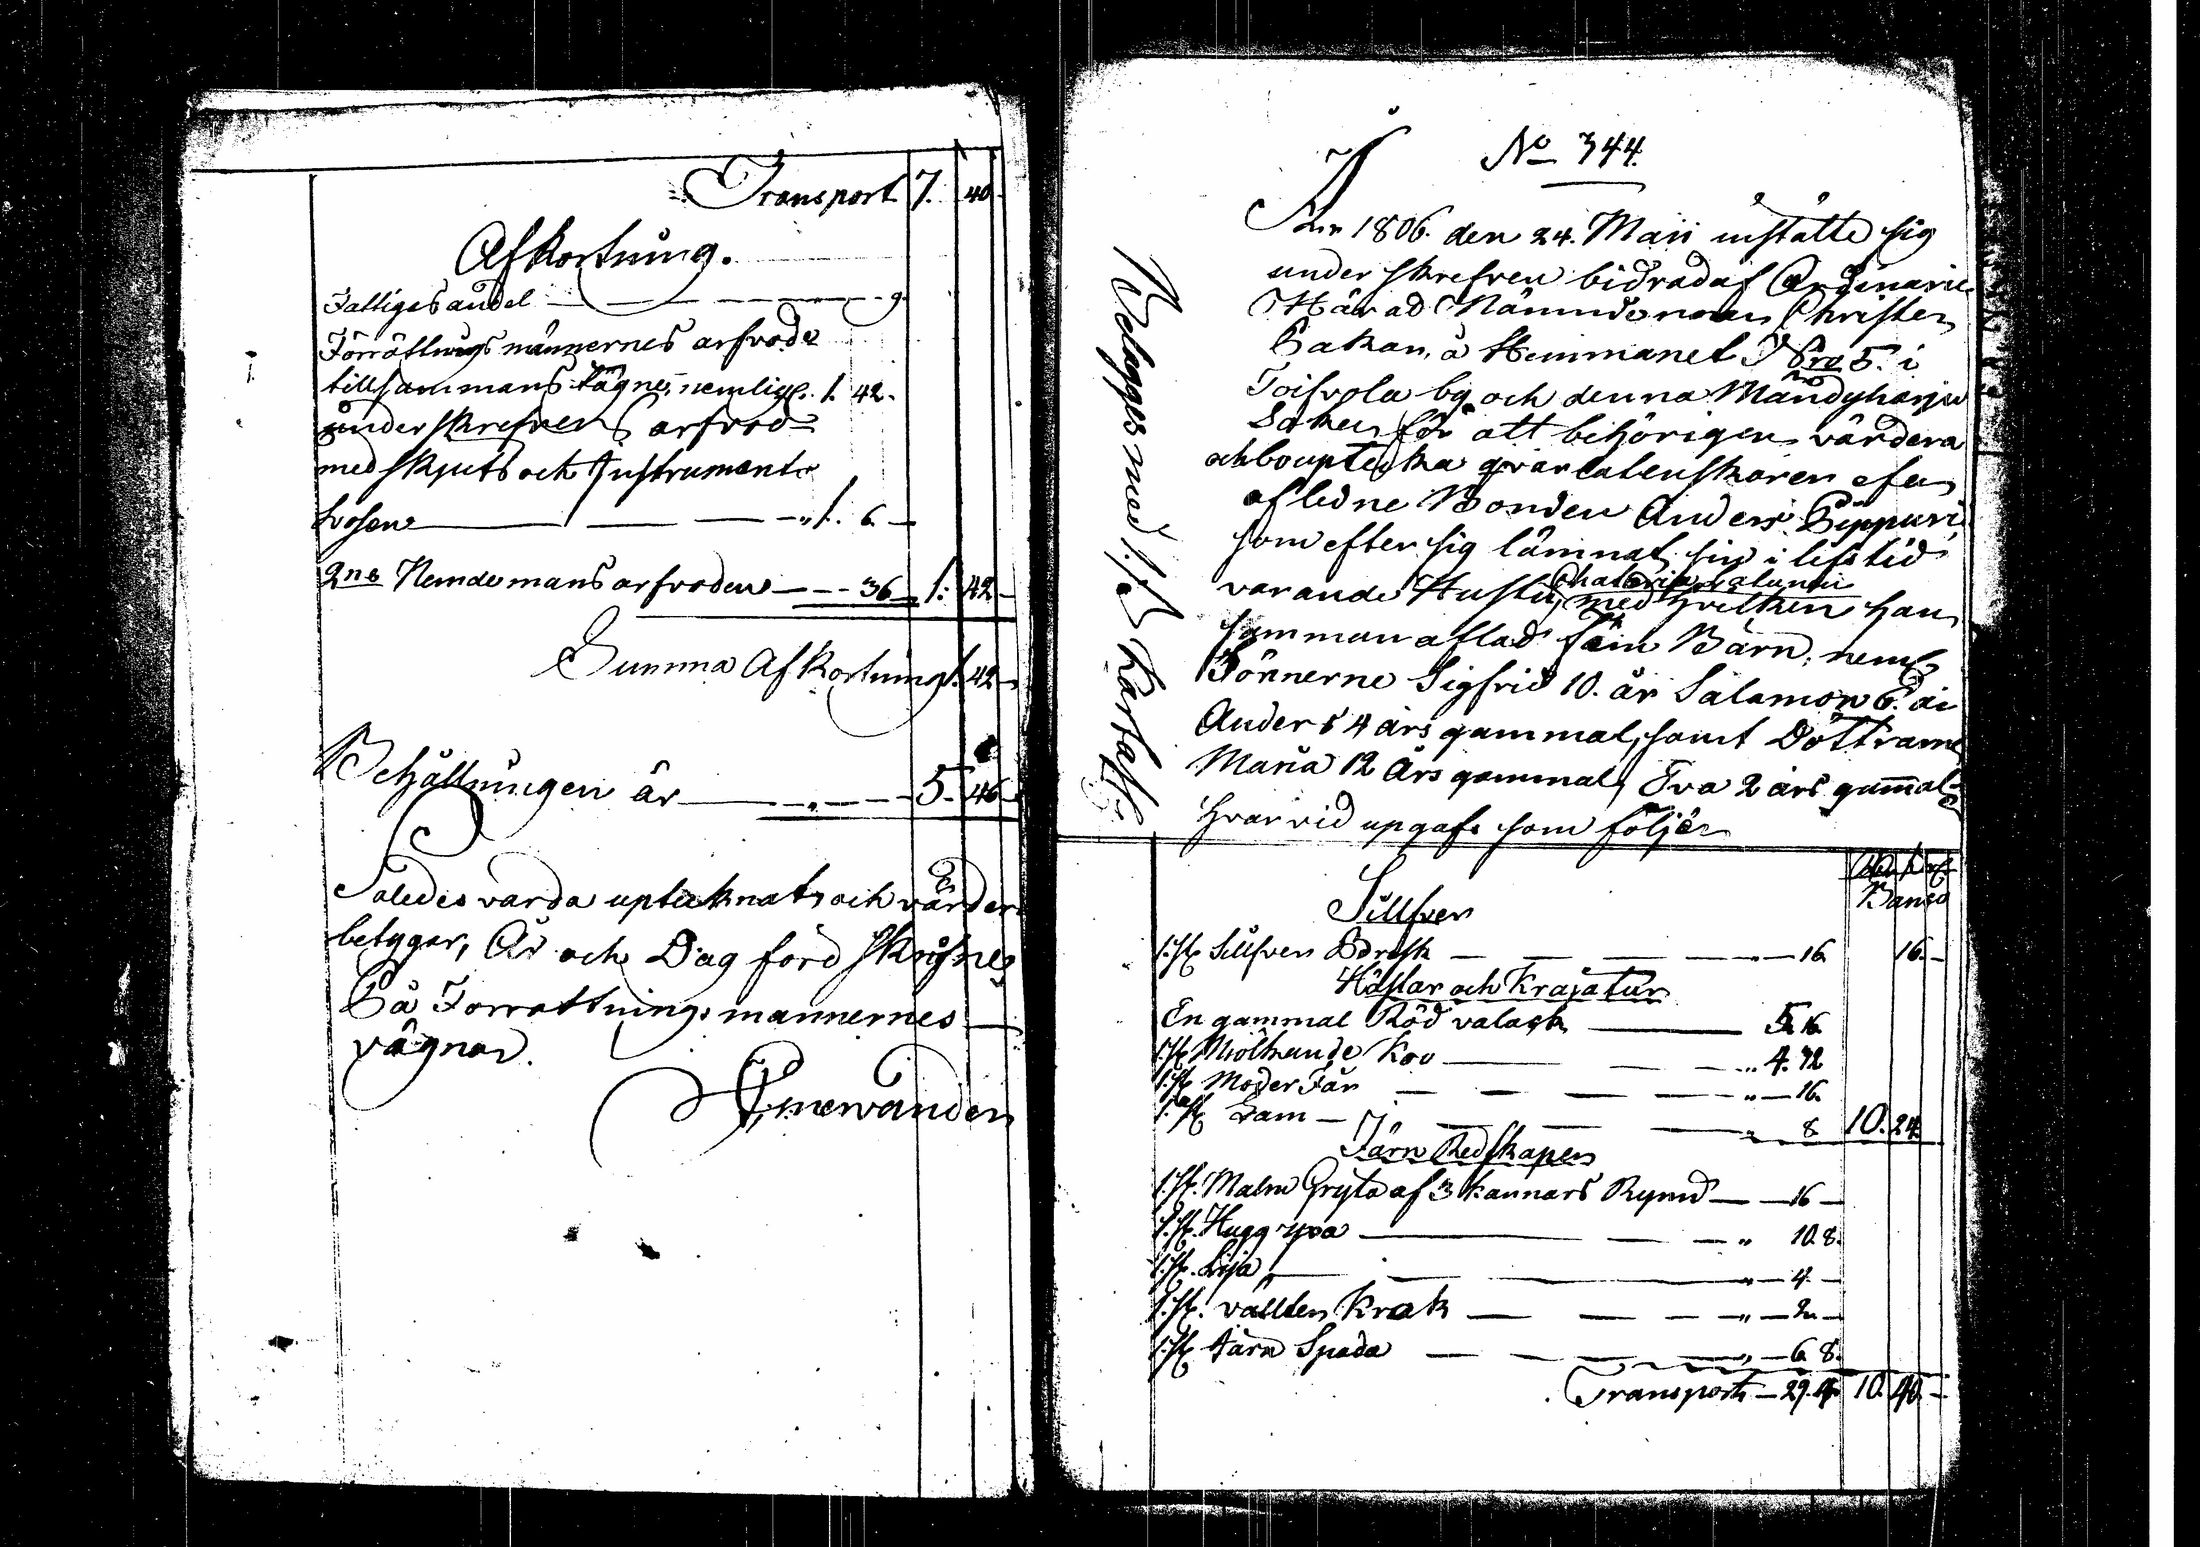 Transport 7. 40.
Afkortning.
Fattiges andel — 9.
Förrättnings männernes arfvode
tillsammans tägne, nemlige. 1. 42.
underskrefnes arfvod
med skjuts och Instrumente
lösen — 1. 6. —
2ne Nemdemans arfvoden — 36 — 1: 42 —
Summa Afkortning 1. 42 —
Behållningen är — 5. 46 —
Saledes varda uptecknat och värder
betygar, År och Dag förd skrifne
På Forrattnings mannernes —
vägnar.
No 344.
År 1806. den 24. Maii instälte sig
underskrefven bidrad af Ordinarie
Härad Nämndeman Christer
Pakan, å Hemmanet No 5. i
Toifvola by och denna Mändyharju
Soken för att behörigen värdera
och bouptecka qvarlatenskaren efter
afledne Bonden Anders Pippuri
som efter sig lämnat sin i lifstid
varande Hustru, med hvilken han
samman aflad Fäm Barn, neml
Sönnerne Sigfrid 10. år Salamon 6. år
Anders 4 års gammal, samt Döttrarne
Maria 12 års gammal, Eva 2 års gamal
hvarvid upgafs som följer
Beloggs med 1/8 Kartass
Banco
Sillfver
1. st. Silfver Brisk — 16. 16. —
Hästar och Krajatur
En gammal Röd valack — 5. 16.
1. st. Miölkande Koo — 4. 32
1. st. Moder Får — 16.
1. st. Lam — 8 10. 24
Järn Redskapen
1. st. Malm Gryta af 3 kannars Rymd — 16 —
1. st. Hugg yxa — 10. 8.
1. st. Lija — 4 —
1. st. vallten Krok — 2 —
1. st. Järn Spada — 6. 8.
Transport — 29. 4. 10. 40. —